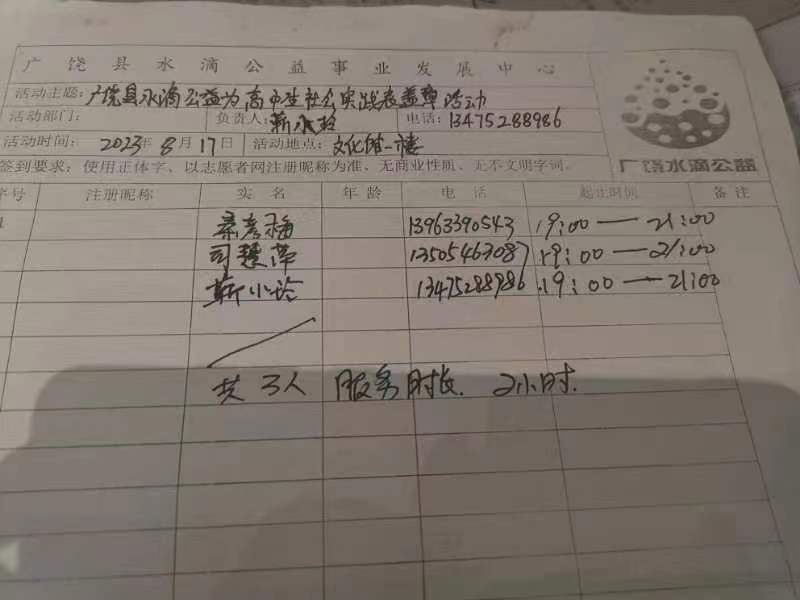 广饶县水滴公益事业发展中心
活动主题：广饶县水滴公益为高中生社会实践表盖章活动
活动部门： 负责人： 电话：13475288986
活动时间：2023年8月17日 活动地点：文化馆一楼
签到要求：使用正体字、以志愿者网注册昵称为准，无商业性质、无不文明字词。
广饶水滴公益
序号 注册昵称 实名 年龄 电话 起止时间 备注
1 13963390543 19:00—21:00
司慧萍 13505463087 19:00—21:00
靳小玲 13475288986 19:00—21:00
共3人 服务时长 2小时